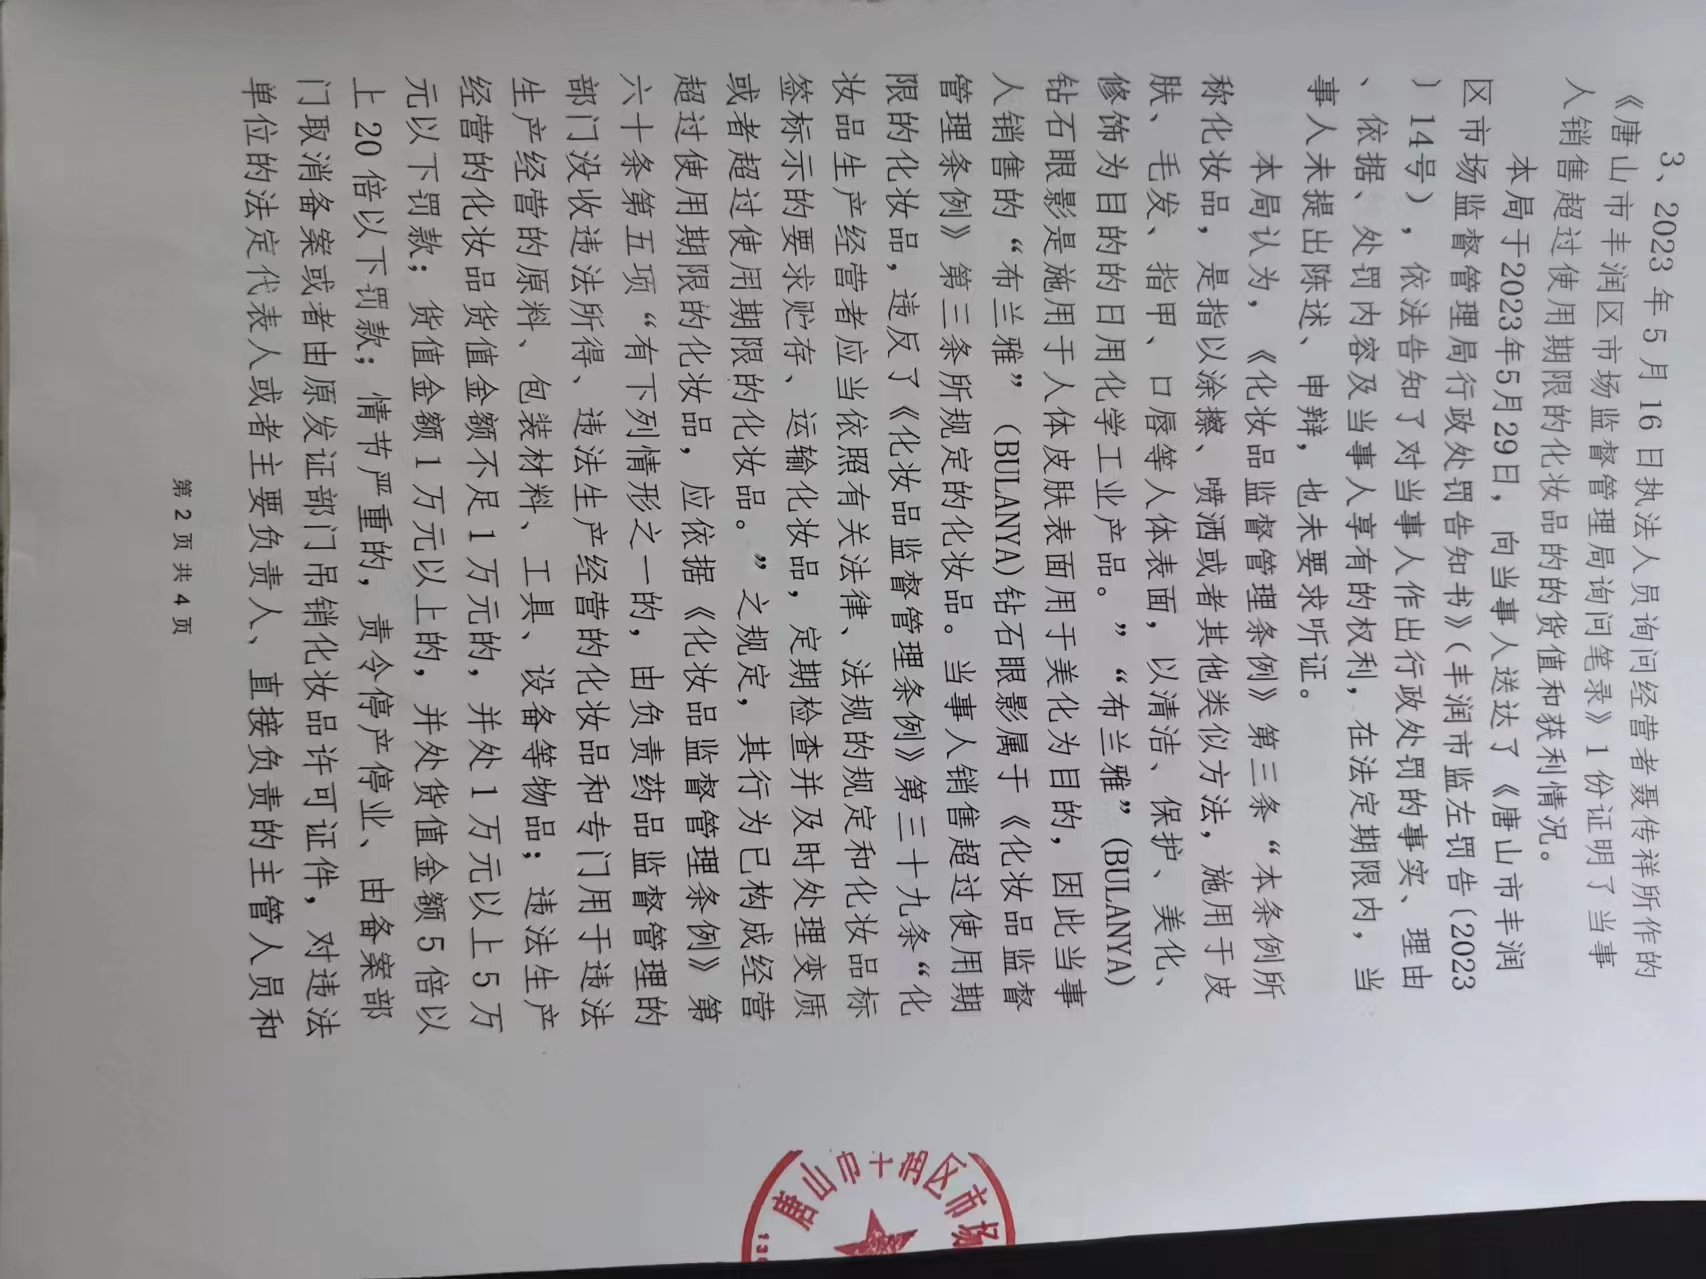 3、2023 年 5 月 16 日执法人员询问经营者聂传祥所作的
《唐山市丰润区市场监督管理局询问笔录》1 份证明了当事
人销售超过使用期限的化妆品的的货值和获利情况。
本局于2023年5月29日，向当事人送达了《唐山市丰润
区市场监督管理局行政处罚告知书》（丰润市监左罚告〔2023
〕14号），依法告知了对当事人作出行政处罚的事实、理由
、依据、处罚内容及当事人享有的权利，在法定期限内，当
事人未提出陈述、申辩，也未要求听证。
本局认为，《化妆品监督管理条例》第三条“本条例所
称化妆品，是指以涂擦、喷洒或者其他类似方法，施用于皮
肤、毛发、指甲、口唇等人体表面，以清洁、保护、美化、
修饰为目的的日用化学工业产品。”“布兰雅”(BULANYA)
钻石眼影是施用于人体皮肤表面用于美化为目的，因此当事
人销售的“布兰雅”(BULANYA)钻石眼影属于《化妆品监督
管理条例》第三条所规定的化妆品。当事人销售超过使用期
限的化妆品，违反了《化妆品监督管理条例》第三十九条“化
妆品生产经营者应当依照有关法律、法规的规定和化妆品标
签标示的要求贮存、运输化妆品，定期检查并及时处理变质
或者超过使用期限的化妆品。”之规定，其行为已构成经营
超过使用期限的化妆品，应依据《化妆品监督管理条例》第
六十条第五项“有下列情形之一的，由负责药品监督管理的
部门没收违法所得、违法生产经营的化妆品和专门用于违法
生产经营的原料、包装材料、工具、设备等物品；违法生产
经营的化妆品货值金额不足 1 万元的，并处 1 万元以上 5 万
元以下罚款；货值金额 1 万元以上的，并处货值金额 5 倍以
上 20 倍以下罚款；情节严重的，责令停产停业、由备案部
门取消备案或者由原发证部门吊销化妆品许可证件，对违法
单位的法定代表人或者主要负责人、直接负责的主管人员和
第 2 页 共 4 页
唐山市丰润区市场